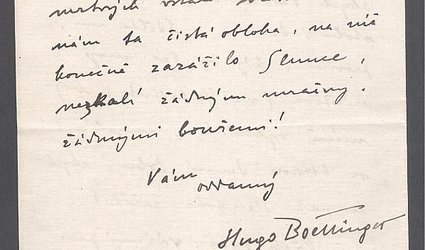 mrtvých
nám ta čistá obloha, na níž
konečně zazářilo Slunce,
nezkalí žádnými mračny,
žádnými bouřemi!
Vám
oddaný
Hugo Boettinger